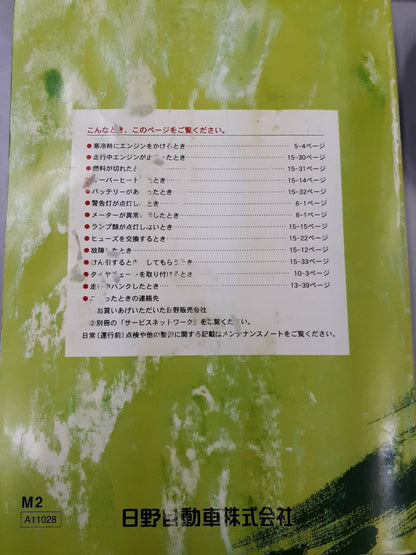 こんなとき、このページをご覧ください。
●寒冷時にエンジンをかけるとき 5-4ページ
●走行中エンジンが止 ったとき 15-30ページ
●燃料が切れたと 15-31ページ
●ーバーヒート とき 15-14ページ
●バッテリーがあ ったとき 15-32ページ
●警告灯が点灯し とき 6-1ページ
●メーターが異常 したとき 6-1ページ
●ランプ類が点灯しないとき 15-15ページ
●ヒューズを交換するとき 15-22ページ
●故障したとき 15-12ページ
●けん引するとき してもらうとき 15-33ページ
●タイヤチェーンを取り付けるとき 10-3ページ
●走行中パンクしたとき 13-39ページ
●こ ったときの連絡先
お買いあげいただいた日野販売会社
②別冊の「サービスネットワーク」をご覧ください。
日常(運行前)点検や他の整備に関する記載はメンテナンスノートをご覧ください。
M2
A11028
日野自動車株式会社